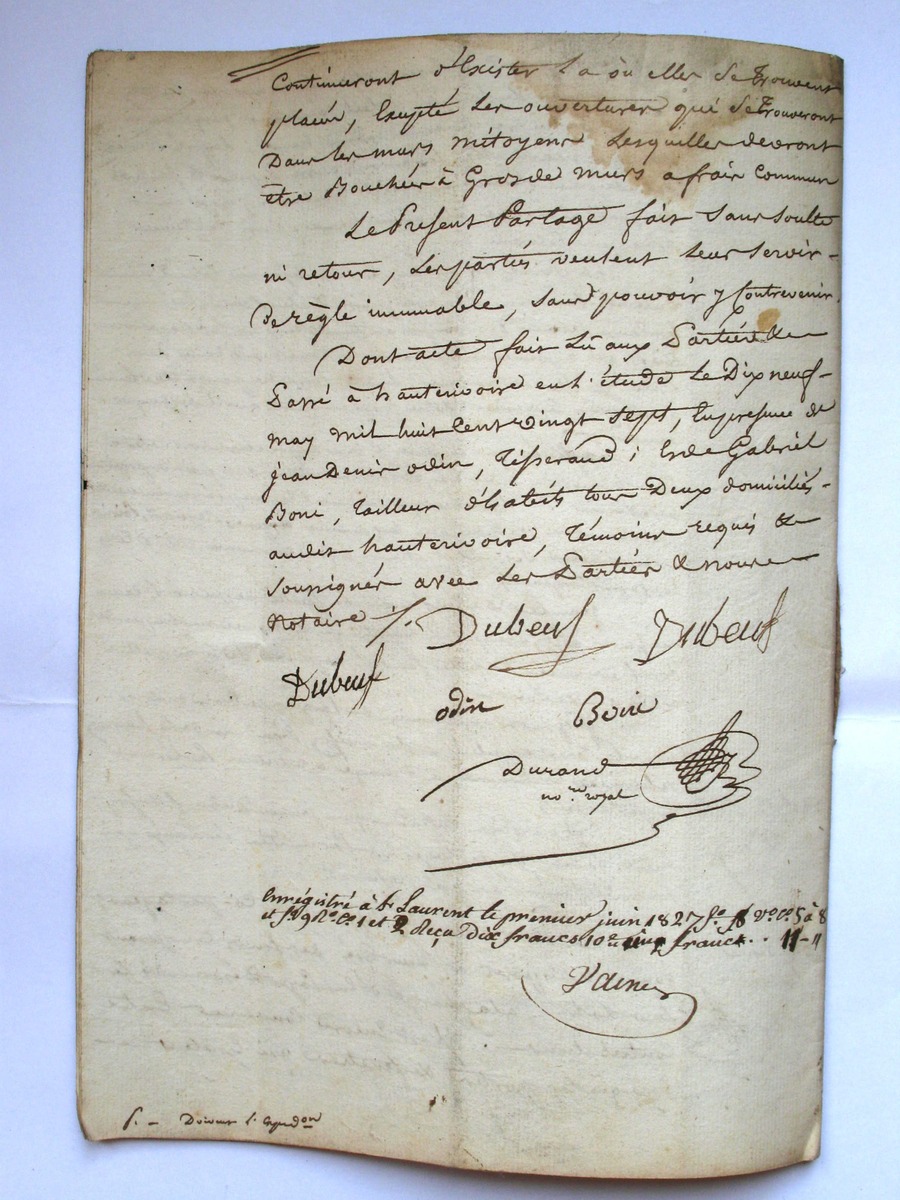 Continueront d'Exister la où elles se trouvent
placés, Exepté les ouvertures qui se trouveront
Dans les murs mitoyens lesquelles devront
être Bouchées à Gros de murs a frais Commun
Le Present Partage fait sans soulte
ni retour, les parties veulent leur servir
De règle immuable, sans pouvoir y Contrevenir.
Dont acte fait Lû aux Parties &
Passé à hauterivoire en l'étude Le Dix neuf
may mil huit Cent vingt sept, En presence de
jean Denis odin, Tisserand; Et de Gabriel
Boni, Tailleur d'habits tous Deux domiciliés
audit hauterivoire, Témoins requis &
soussignés avec Les Parties & nous
Notaire ./.
Dubeuf Dubeuf
Dubeuf
odin Boni
Durand
no.re royal
Enrégistré à St Laurent le premier juin 1827 fo. 8 vo. co. 5 à 8
et fo 9 Ro. Co. 1 et 2 Reçu Dix francs 10e un franc .. 11-"